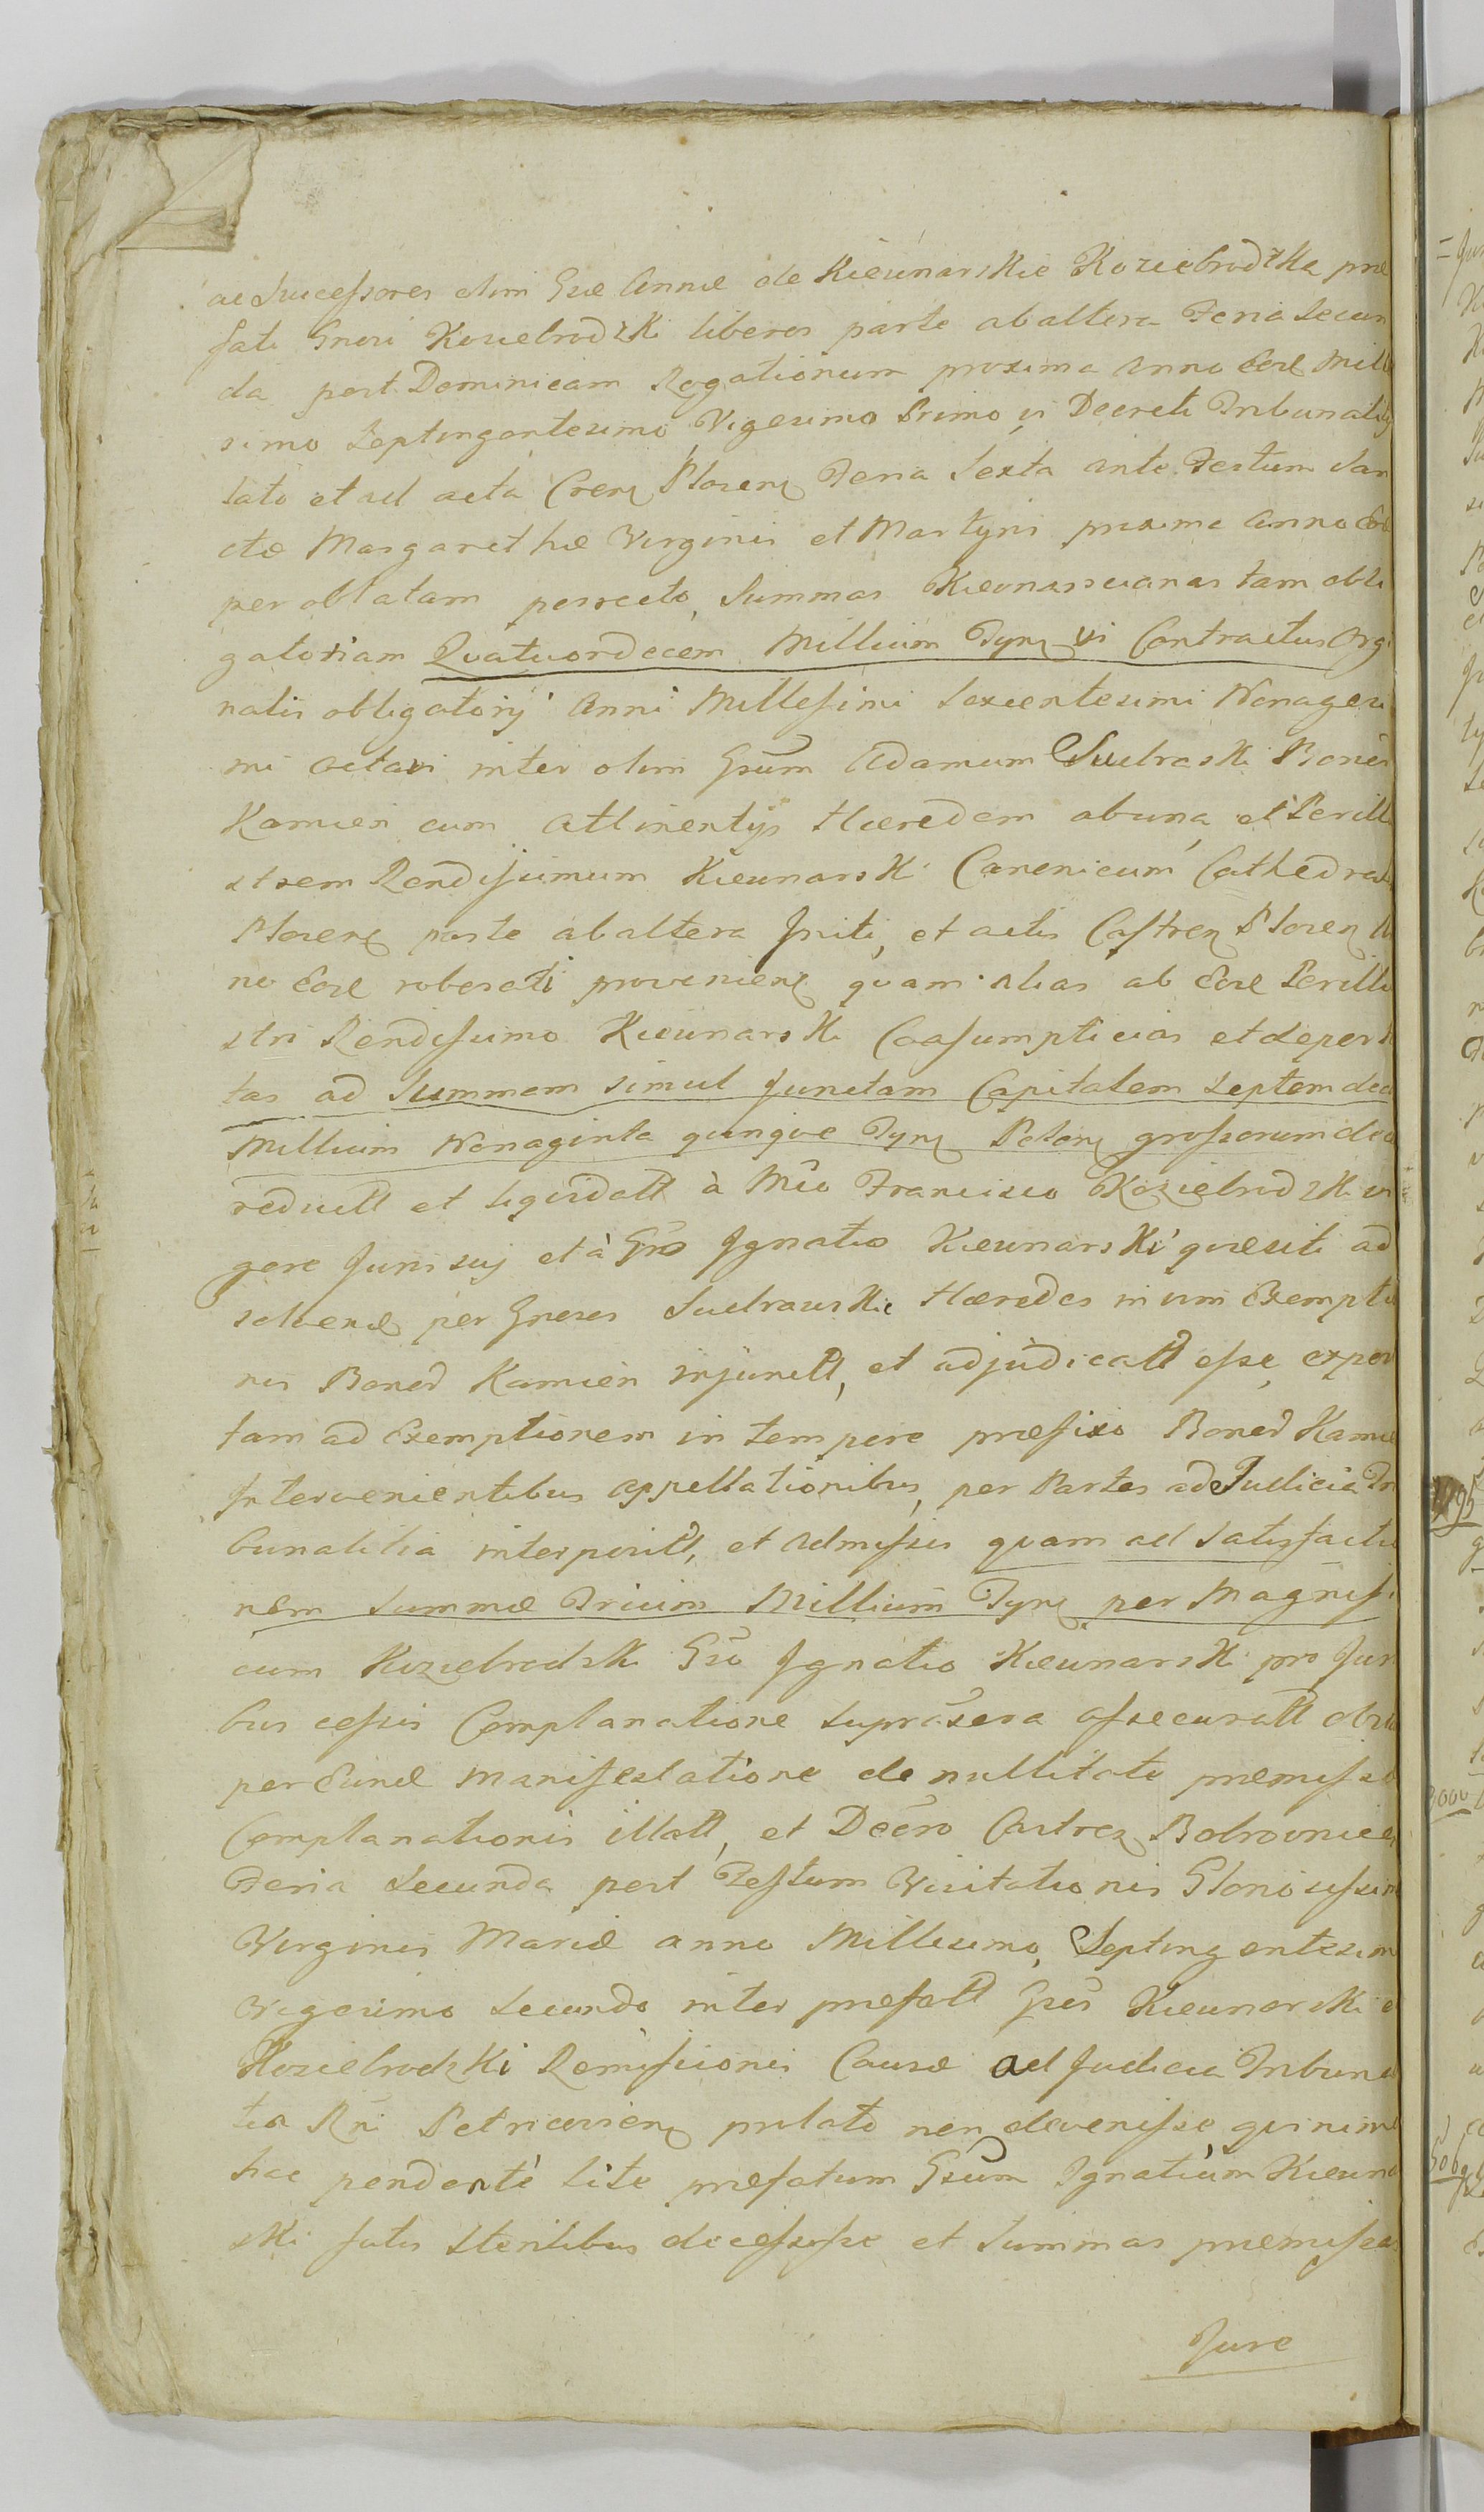 ac Successores olim Gsae Annae de Kieunarskie Koziebrodzka prae
fati Gnosi Koziebrodzki liberos parte ab altera Feria Secun
da post Dominicam Rogationum proxima Anno Eod Mill
simo Septingentesimo Vigesimo Primo, vi Decreti Tribunality
lato et ad acta Cren Plocen Feria Sexta ante Festum San
ctae Margarethae Virginis et Martyris proxima Anno Eod
per oblatam porrecto, Summas Kieunarscianas tam obli
gatoriam Quatuordecem Millium Tynf vi Contractus Orgi
nalis obligatorij Anni Millesimi Sexcentesimi Nonagesi
mi octavi inter olim Gsum Adamum Suchorski Bonor
Kamien cum attinentijs Haeredem ab una, et Perillu
strem Rendissimum Kieunarski Canonicum Cathedral
Plocen parte ab altera Initi, et actis Castren Plocen
no Eod roborati provenien quam alias ab Eod Perillu
stri Rendissimo Kieunarski Coasumpticias et deporta
tas ad Summam simul junctam Capitalem Septemdec
Millium Nonaginta qunque Tynf Polon grossorum dec
reductt et liquidatt à Mco Francisco Koziebrodzki vi
gore Juris suj et à Gso Ignatio Kieunarski quaesiti ad
solvend per Gnosos Suchorskie Haeredes in vim Exemptio
nis Bonor Kamien injunctt, et adjudicatt esse,
tam ad Exemptionem in tempore praefixo Bonor Kamie
Intervenientibus appellationibus, per Partes ad Judicia Tri
bunalitia interpositt, et admissis quam ad Satisfactio
nem Summae Trium Millium Tynf per Magnifi
cum Koziebrodzki Gso Ignatio Kieunarski pro Juri
bus cessis Complanatione suprasera assecuratt
per Eund Manifestatione de nullitate praemissae
Complanationis illatt, et Decro Castren Bobrovnicen
Feria Secunda post Festum Visitationis Gloriosissim
Virginis Mariae anno Millesimo, Septingentesim
Vigesimo Secundo inter praefatt Gsos Kieunarski e
Koziebrodzki Remissionis Causae ad Judicia Tribuna
tia Rni Petricovien prolato non devenisse quinim
hac pendente lite praefatum Gsum Ignatium Kieuna
ski fatis Sterilibus decessisse et Summas praemissas
Jure
3000